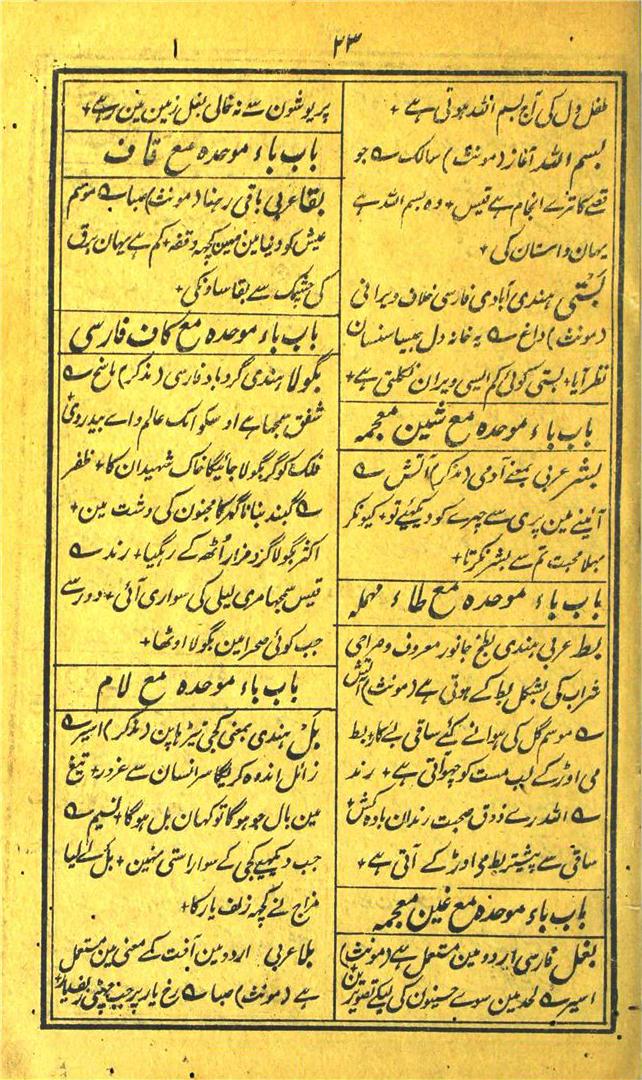 ۲۳
طفل دل کی آج بسم اللہ ہوتی ہے +
بسم اللہ آغاز (مونث) سالک ؎ جو
قصے کا ترے انجام ہے قیس + وہ بسم اللہ ہے
یہان داستان کی +
بستی ہندی آبادی فارسی خلاف ویرانی
(مونث) داغ ؎ یہ خانہ دل جیسا سنسان
نظر آیا + بستی کوئی کم ایسی ویران نکلتی ہے +
باب باء موحدہ مع شین معجمہ
بشر عربی بمعنے آدمی (مذکر) آتش ؎
آئینے مین پری سے چہرے کو دیکھیے تو + کیونکر
بھلا محبت تم سے بشر نکرتا +
باب باء موحدہ مع طاء مہملہ
بط عربی ہندی بطخ جانور معروف و صراحی
شراب کی بشکل بط کے ہوتی ہے (مونث) آتش
؎ موسم گل کی ہوانے کئے ساقی بے کار + بط
می اوڑ کے لب مست کو چھو آتی ہے + رند
؎ اللہ رے ذوق صحبت رندان بادہ کش +
ساقی سے پیشتر بط می اوڑ کے آتی ہے +
باب باء موحدہ مع غین معجمہ
بغل فارسی اردو مین مستعمل ہے (مونث)
اسیر ؎ لحد مین سوے حسینون کی لیکے تصویرین +
پریوشون سے نہ خالی بغل زمین مین رہے +
باب باء موحدہ مع قاف
بقا عربی باقی رہنا (مونث) صبا ؎ موسم
عیش کو دنیا مین نہین کچھ وقفہ + کم ہے یہان برق
کی چشمک سے بقا ساون کی +
باب باء موحدہ مع کاف فارسی
بگولا ہندی گرد باد فارسی (مذکر) ناسخ ؎
شفق سمجھا ہے اوسکو اک عالم واے بیدردی +
فلک کو گر بگولا جائیگا خاک شہیدان کا + ظفر
؎ گنبد بنانا گھر کا مجنون کی دشت مین +
اکثر بگولا گرد مزار اُٹھ کے رہگیا + رند ؎
قیس سمجھا مری لیلی کی سواری آئی + دور سے
جب کوئی صحرا مین بگولا اوٹھا +
باب باء موحدہ مع لام
بل ہندی بمعنی کجی ٹیڑھا پن (مذکر) اسیر ؎
زائل اندوہ کریگا سر انسان سے غرور + تیغ
مین بال جو ہوگا تو کہان بل ہوگا + نسیم ؎
جب دیکھیے کجی کے سوا راستی نہین + بل لے لیا
مزاج نے کچھ زلف یار کا +
بلا عربی اردو مین آفت کے معنی مین مستعمل
ہے (مونث) صبا ؎ رخ یار پر جب